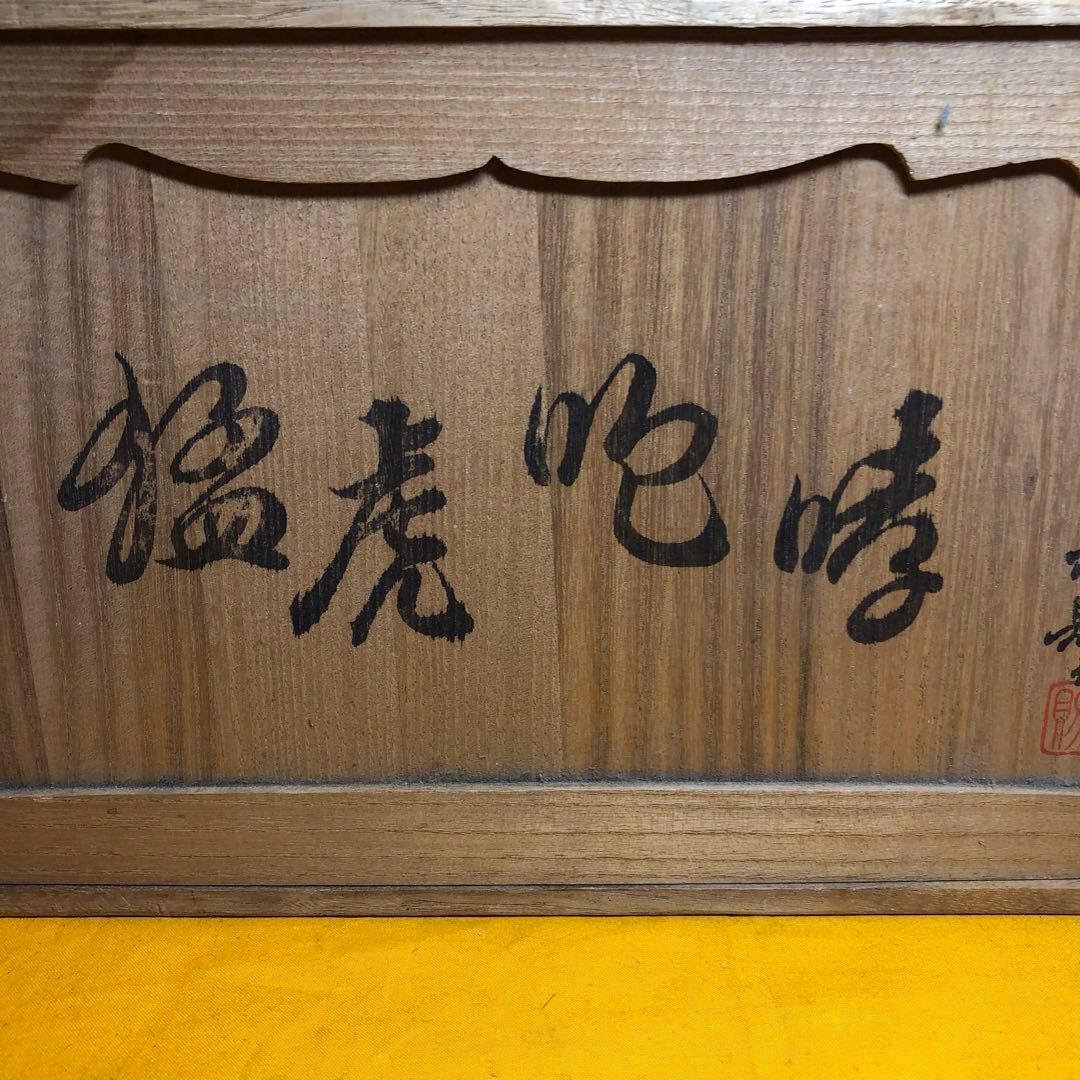 猛虎咆哮